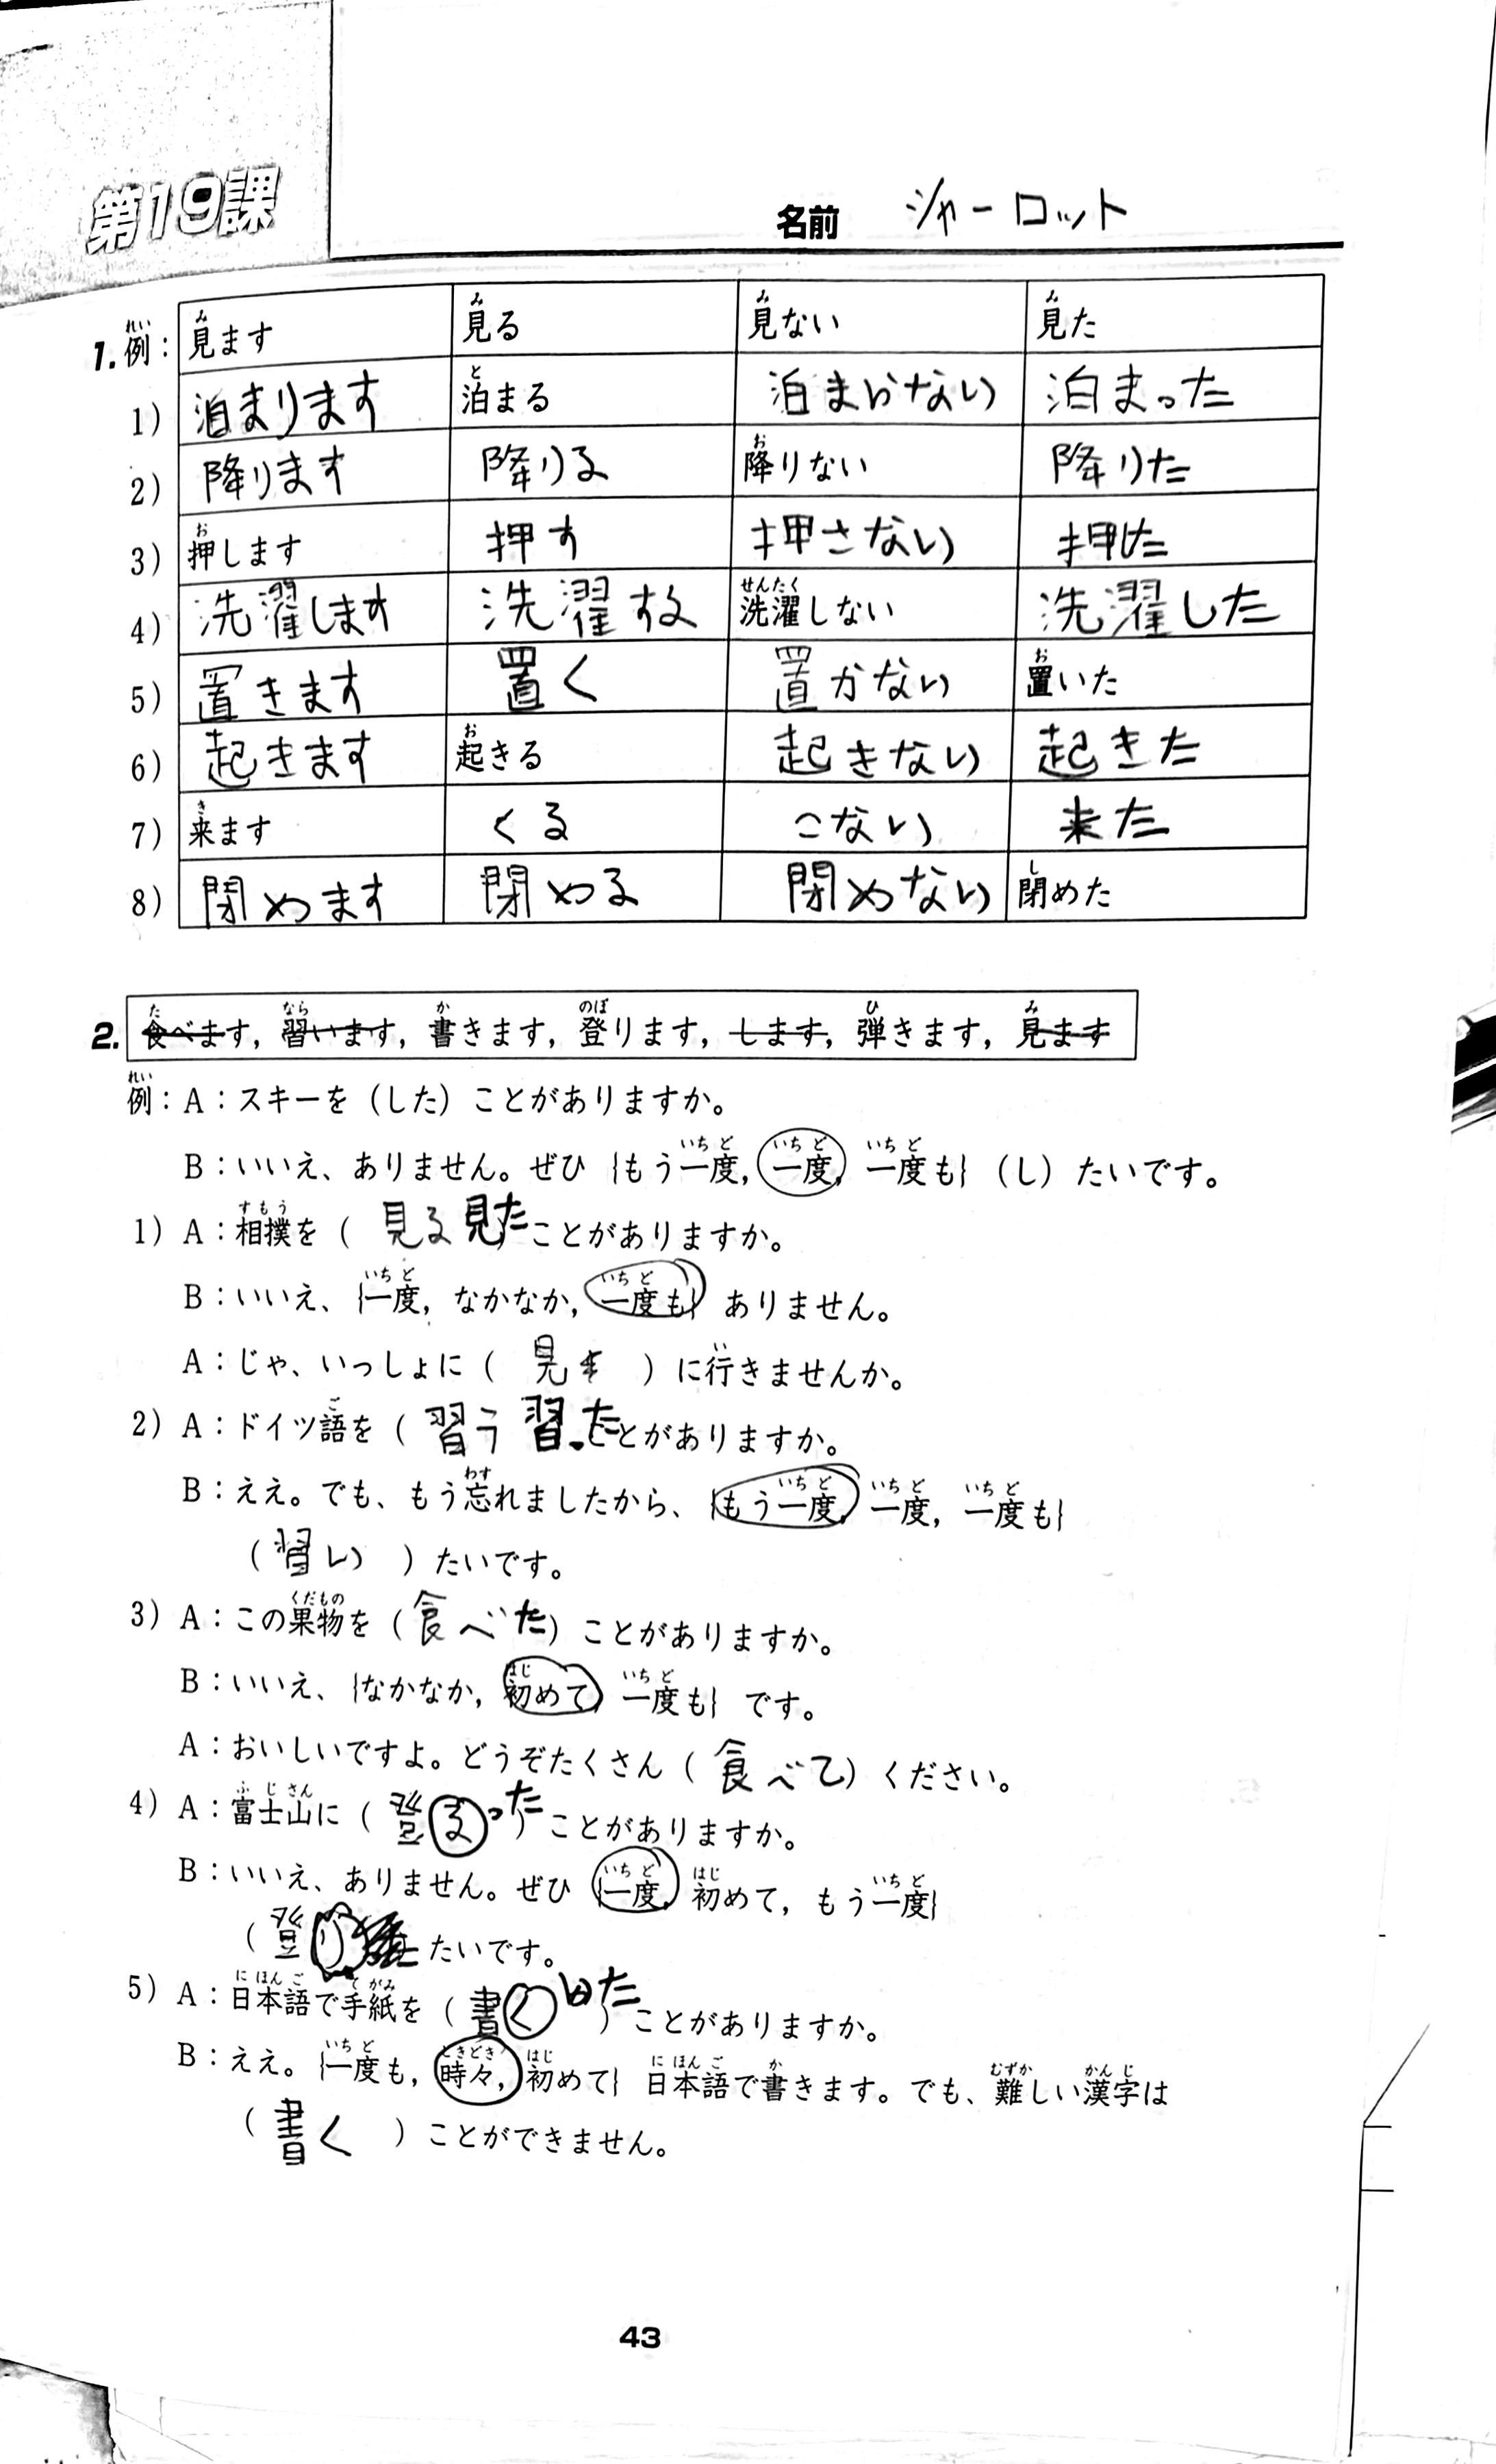 第19課
名前 シャーロット
1. 例： 見ます 見る 見ない 見た
1) 泊まります 泊まる 泊まらない 泊まった
2) 降ります 降りる 降りない 降りた
3) 押します 押す 押さない 押した
4) 洗濯します 洗濯する 洗濯しない 洗濯した
5) 置きます 置く 置かない 置いた
6) 起きます 起きる 起きない 起きた
7) 来ます くる こない 来た
8) 閉めます 閉める 閉めない 閉めた
2. 食べます, 習います, 書きます, 登ります, します, 弾きます, 見ます
例：A：スキーを（した）ことがありますか。
B：いいえ、ありません。ぜひ {もう一度, 一度, 一度も} （し）たいです。
1) A：相撲を（ 見る 見た ）ことがありますか。
B：いいえ、{一度, なかなか, 一度も} ありません。
A：じゃ、いっしょに（ 見 ）に行きませんか。
2) A：ドイツ語を（ 習う 習った ことがありますか。
B：ええ。でも、もう忘れましたから、{もう一度, 一度, 一度も}
（ 習い ）たいです。
3) A：この果物を（ 食べた ）ことがありますか。
B：いいえ、{なかなか, 初めて, 一度も} です。
A：おいしいですよ。どうぞたくさん（ 食べて ）ください。
4) A：富士山に（ 登る った ）ことがありますか。
B：いいえ、ありません。ぜひ {一度, 初めて, もう一度}
（ 登り たいです。
5) A：日本語で手紙を（ 書く いた ）ことがありますか。
B：ええ。{一度も, 時々, 初めて} 日本語で書きます。でも、難しい漢字は
（ 書く ）ことができません。
43